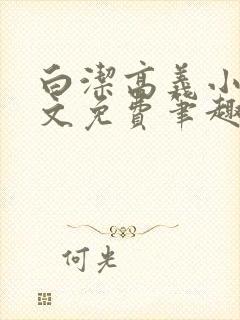 白潔高義小
文免費筆趣
何光